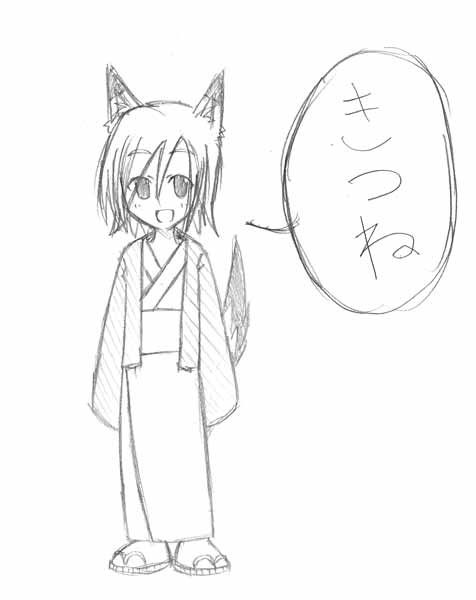 きつね